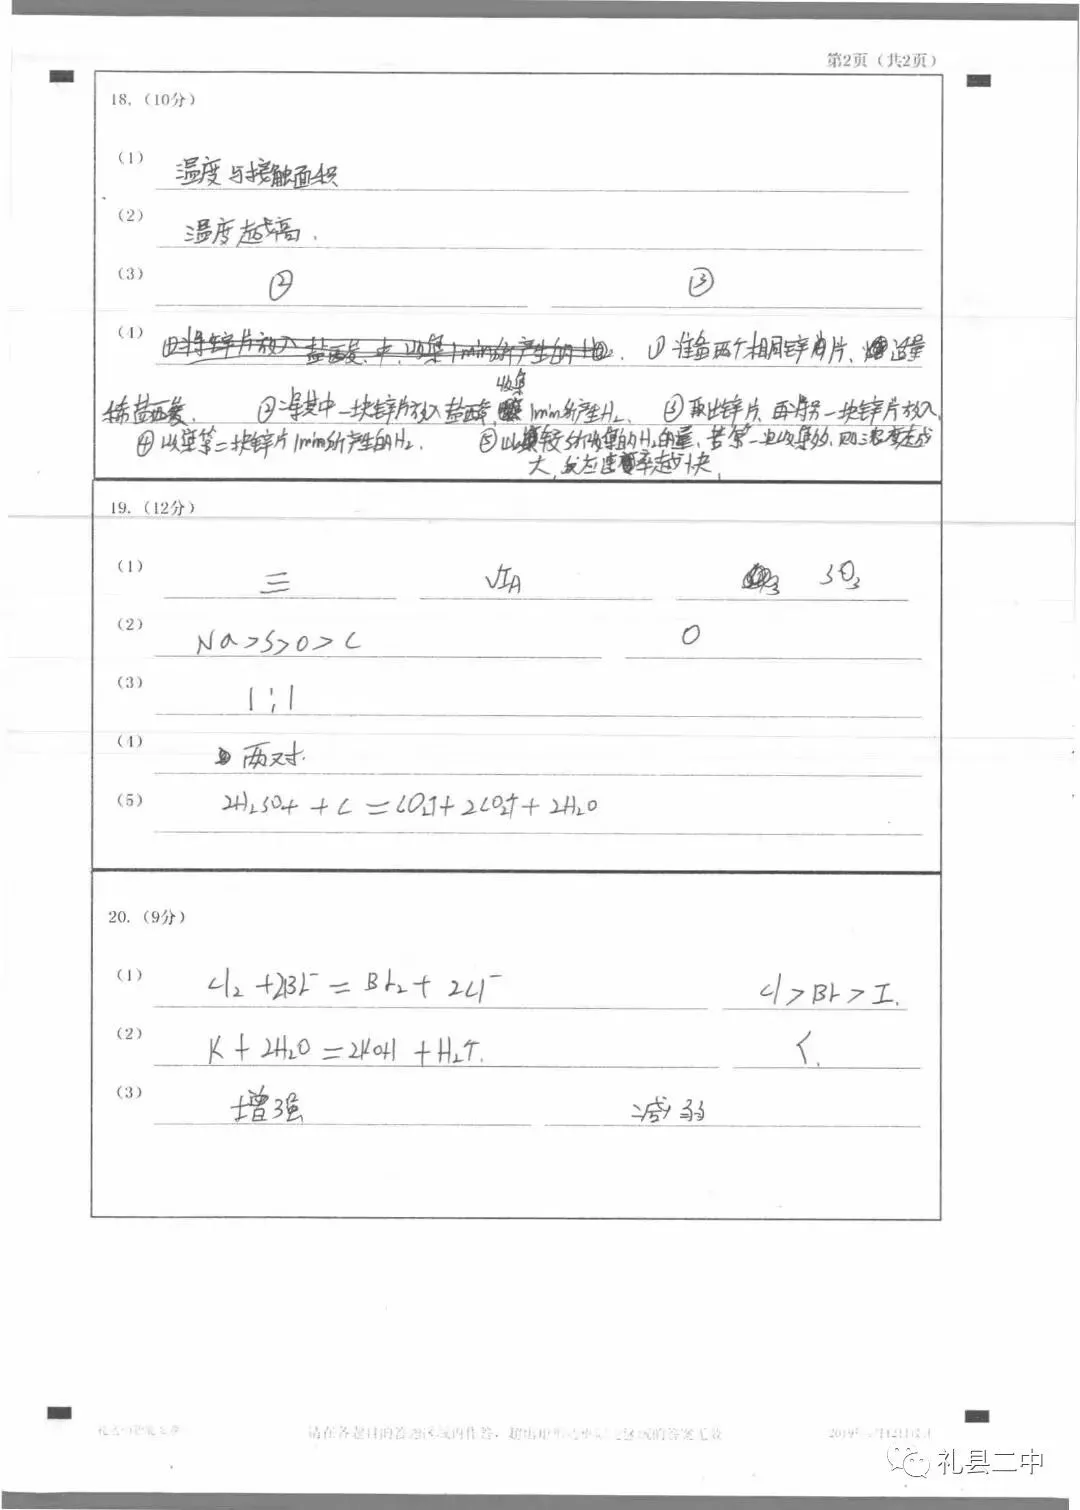 第2页（共2页）
18.（10分）
(1) 温度与接触面积
(2) 温度越高.
(3) ② ③
(4) ①将锌片放入盐酸中,收集1min所产生的H₂. ①准备两个相同锌片、适量
稀盐酸. ②将其中一块锌片放入盐酸,收集1min所产生H₂. ③取出锌片,再将另一块锌片放入,
④收集第二块锌片1min所产生的H₂. ⑤比较所收集的H₂的量,若第一次收集多,则浓度越
大,反应速率越快.
19.（12分）
(1) 三 ⅥA SO₃
(2) Na>S>O>C O
(3) 1:1
(4) 两对.
(5) 2H₂SO₄+C=CO₂↑+2CO₂↑+2H₂O
20.（9分）
(1) Cl₂+2Br⁻=Br₂+2Cl⁻ Cl>Br>I.
(2) K+2H₂O=2KOH+H₂↑. <.
(3) 增强 减弱
请在各题目的答题区域内作答，超出
礼县二中